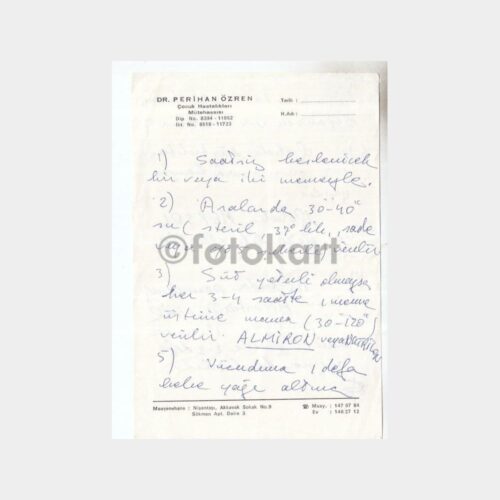 DR. PERİHAN ÖZREN
Çocuk Hastalıkları
Mütehassısı
Dip No. 8394 - 11952
İht. No. 8618 - 11723
Tarih :
H.Adı :
1) Saatsiz beslenecek
bir veya iki memeyle.
2) Aralarda 30-40
su ( steril, 37° lik, sade
veya
©fotokart
3) Süt yeterli olmazsa
her 3-4 saatte 1 mama
üstüne mama (30-120)
verilir. ALMİRON veya
5) Vücuduna 1 defa
baba yağı
Muayenehane : Nişantaşı, Akkavak Sokak No.9
Gökmen Apt. Daire 3
☎ Muay. : 147 97 94
Ev : 146 27 12